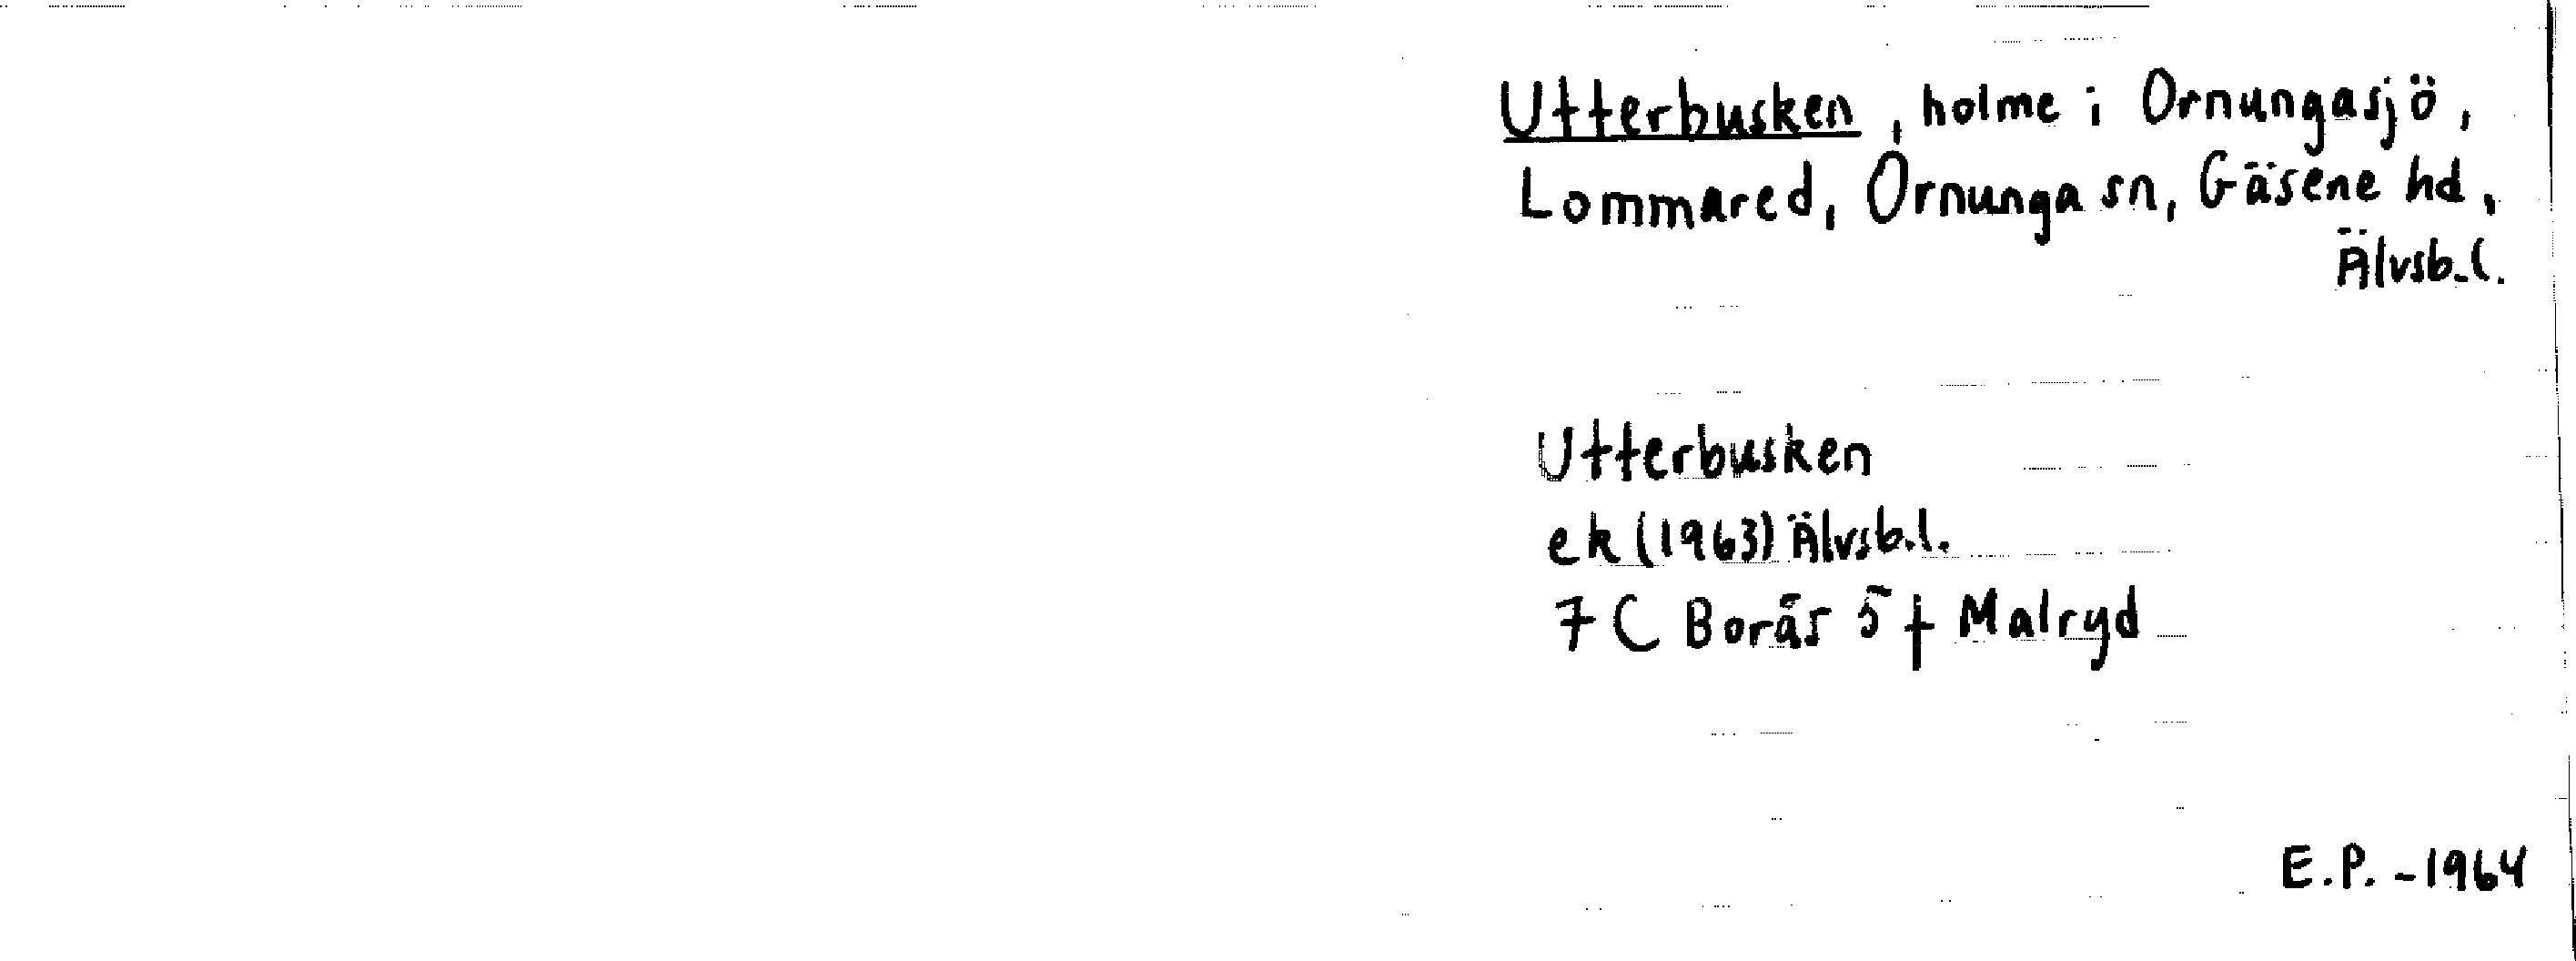 Utterbusken, holme i Ornungasjö,
Lommared, Ornunga sn, Gäsene hd,
Älvsb.l.
Utterbusken
ek (1963) Älvsb.l.
7 C Borås 5 f Malryd
E.P. -1964